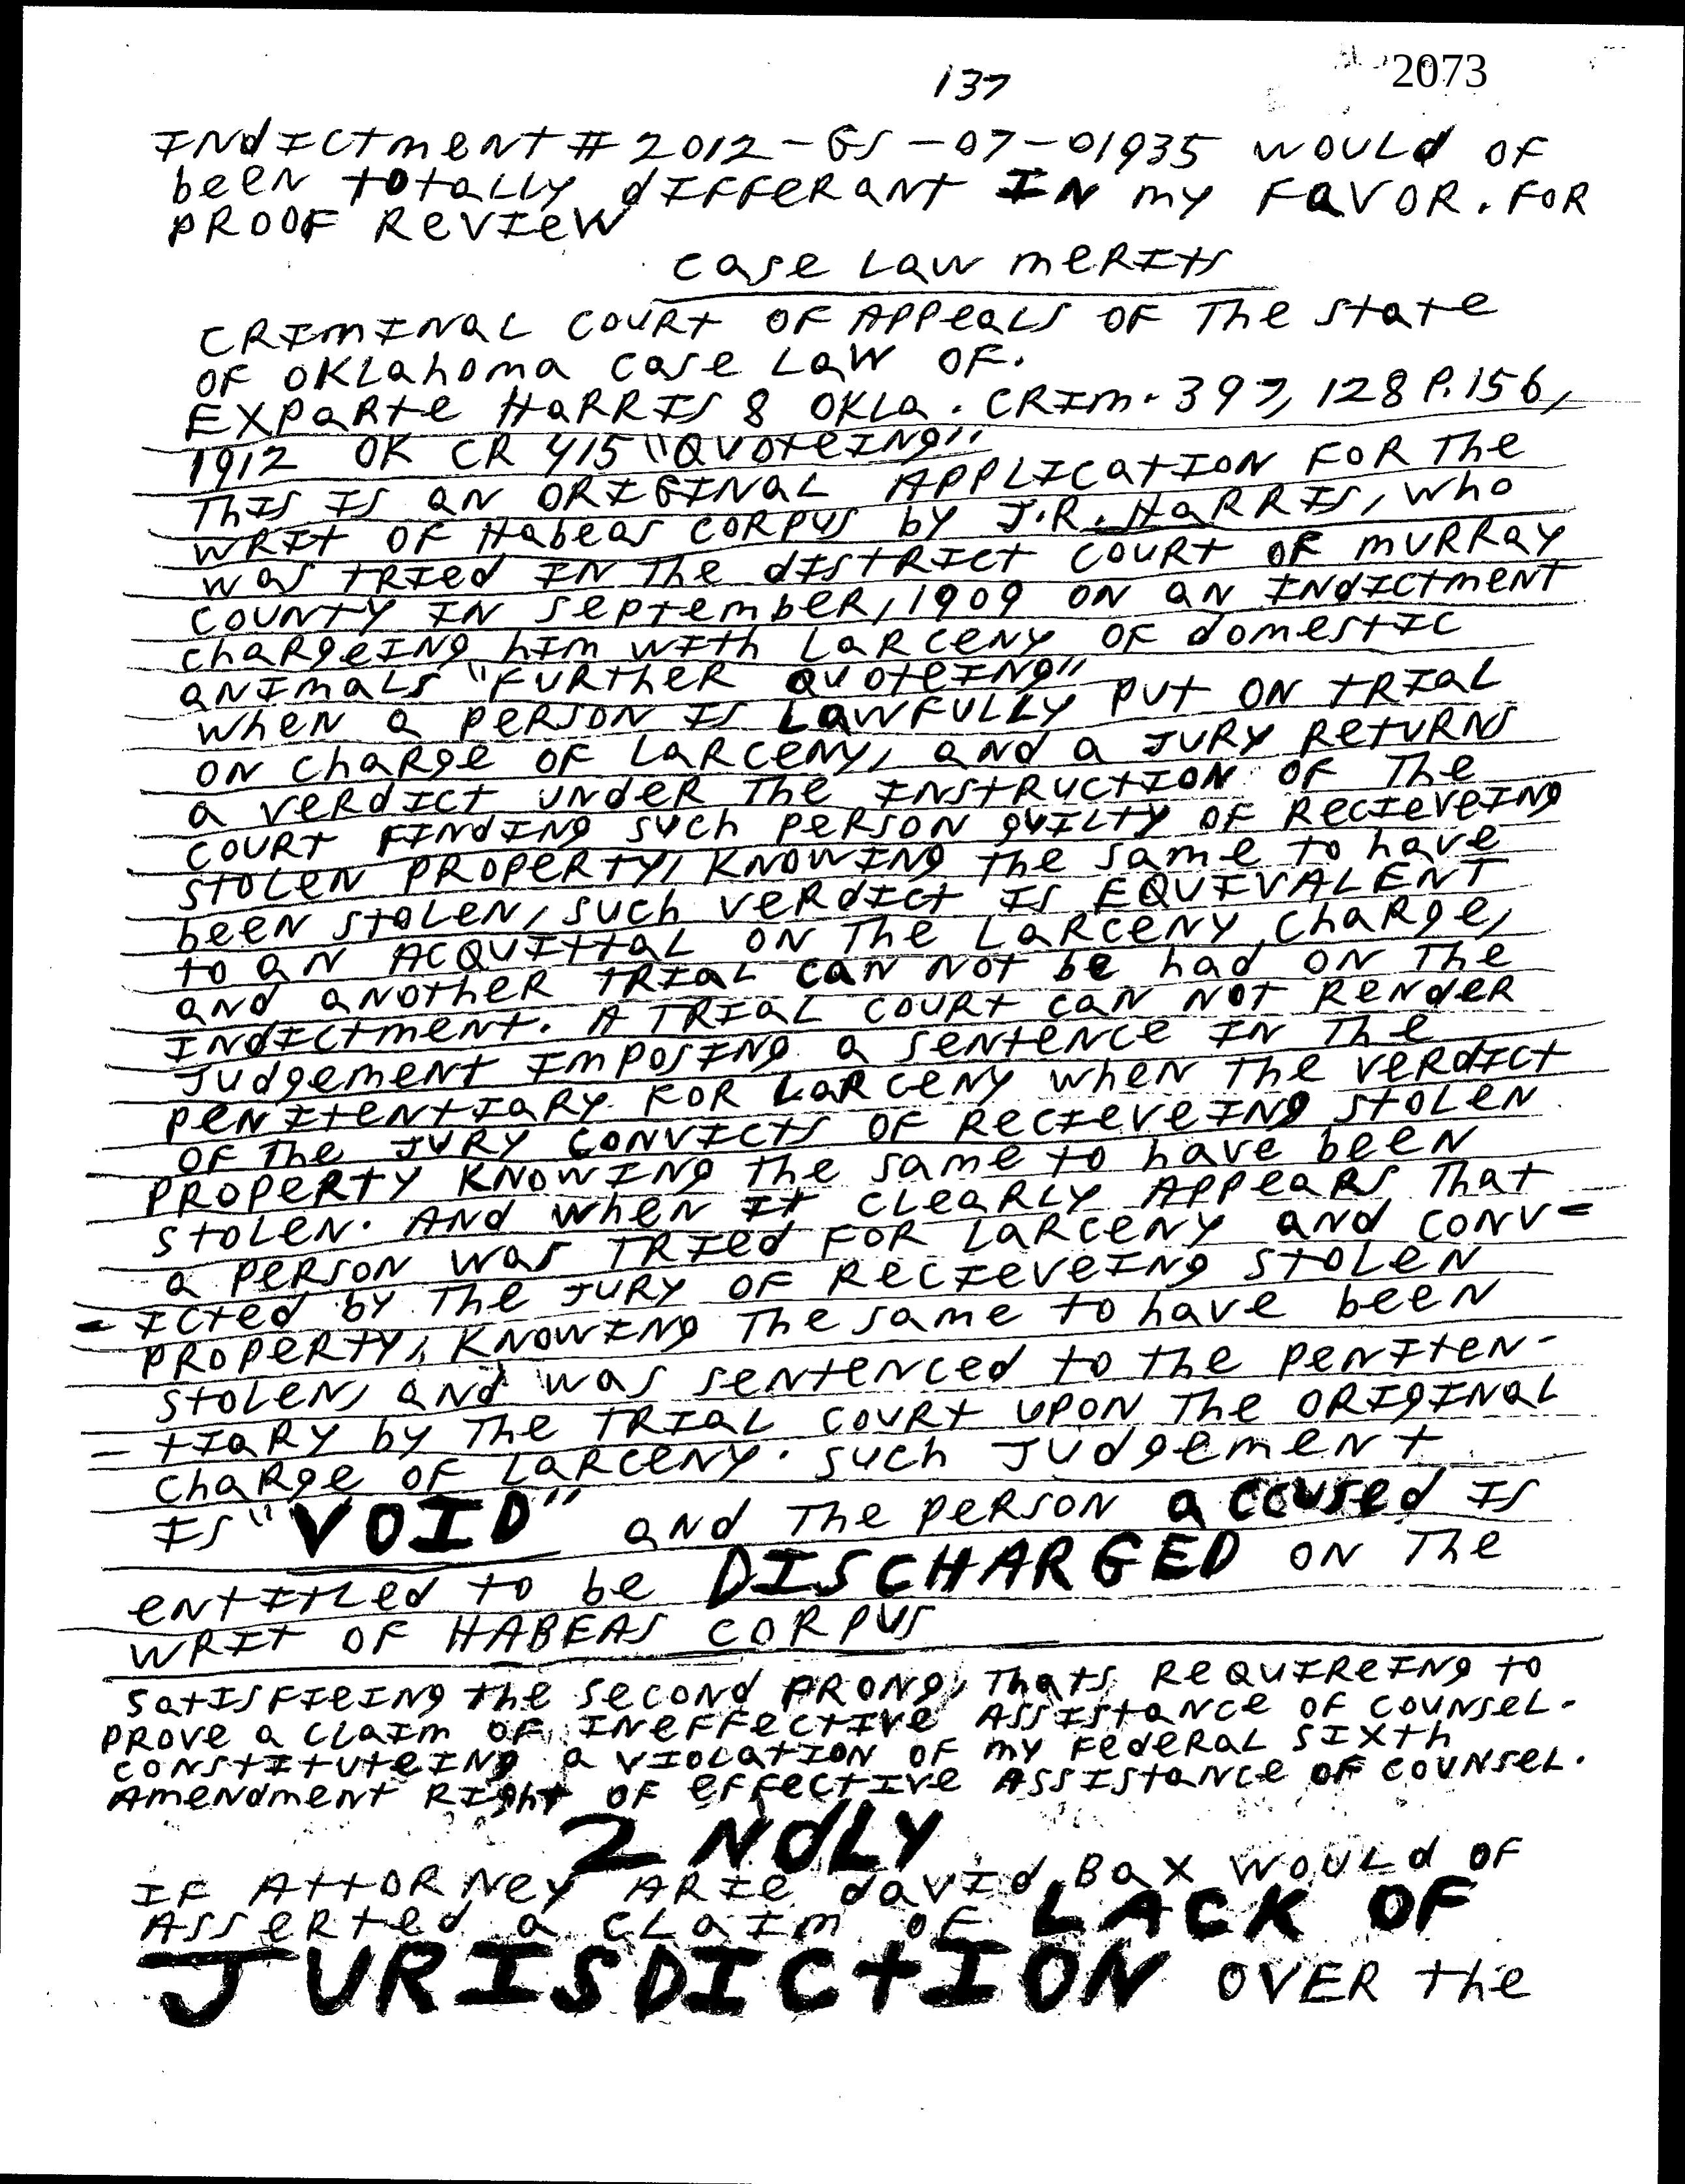 137
2073
INdICtmeNt # 2012-GS-07-01935 WOULd OF
beeN totaLLY dIFFeRaNt IN my FaVOR. FOR
PROOF ReVIeW
Case Law meRIts
CRImINaL COURt OF APPeaLS OF The State
OF OKLahoma Case LaW OF.
EXPaRte HaRRIS 8 OKLa. CRIm. 397, 128 P. 156,
1912 OK CR 415 "QUOteING"
ThIS IS aN ORIGINaL APPLICatION FOR The
WRIt OF Habeas CORPUS by J.R. HaRRIS, Who
Was tRIed IN The dIStRICt COURt OF mURRAY
COUNtY IN SePtembeR, 1909 ON aN INdICtmeNt
ChaRgeING hIm WIth LaRCeNY OF domeStIC
aNImaLS "FURtheR QUOteING"
When a PeRSON IS LaWFULLY PUt ON tRIaL
ON ChaRge OF LaRCeNY, aNd a JURY RetURNS
a VeRdICt UNdeR The INStRUCtION OF The
COURt FINdING SUCh PeRSON gUILtY OF ReCIeVeING
StOLeN PROPeRtY, KNOWING the Same to have
beeN StOLeN, SUCh VeRdICt IS EQUIVALENT
to aN ACQUIttaL ON The LaRCeNY ChaRge,
aNd aNOtheR TRIaL CaN NOt be had ON The
INdICtmeNt. A TRIaL COURt CaN NOT ReNdeR
JUdgemeNt ImPOSING a SeNteNCe IN The
PeNIteNtIaRY FOR LaRCeNY WheN The VeRdICt
OF The JURY CONVICtS OF ReCIeVeING StOLeN
PROPeRtY KNOWING The Same to have beeN
StOLeN. ANd WheN It CLeaRLY APPeaRS That
a PeRSON WaS TRIed FOR LaRCeNY aNd CONV=
= ICted by The JURY OF ReCIeVeING StOLeN
PROPeRtY, KNOWING The Same to have beeN
StOLeN, aNd WaS SeNteNCed to the PeNIteN-
= tIaRY by The TRIaL COURt UPON The ORIgINaL
ChaRge OF LaRCeNY. SUCh JUdgemeNt
IS "VOID" aNd The PeRSON aCCUSed IS
eNtItLed to be DISCHARGED ON The
WRIt OF HABEAS CORPUS
SatISFIeING the SeCONd PRONg, thatS ReQUIReING to
PROVe a CLaIm OF INeFFeCtIVe ASSIStaNCe OF COUNSeL.
CONStItUteING a VIOLatION OF my FedeRaL SIXth
AmeNdmeNt RIght OF eFFeCtIVe ASSIStaNCe OF COUNSeL.
2 NdLY
IF AttORNeY ARIe daVId Bax WOULd OF
ASSeRted a CLaIm OF LACK OF
JURISDICtION OVER the